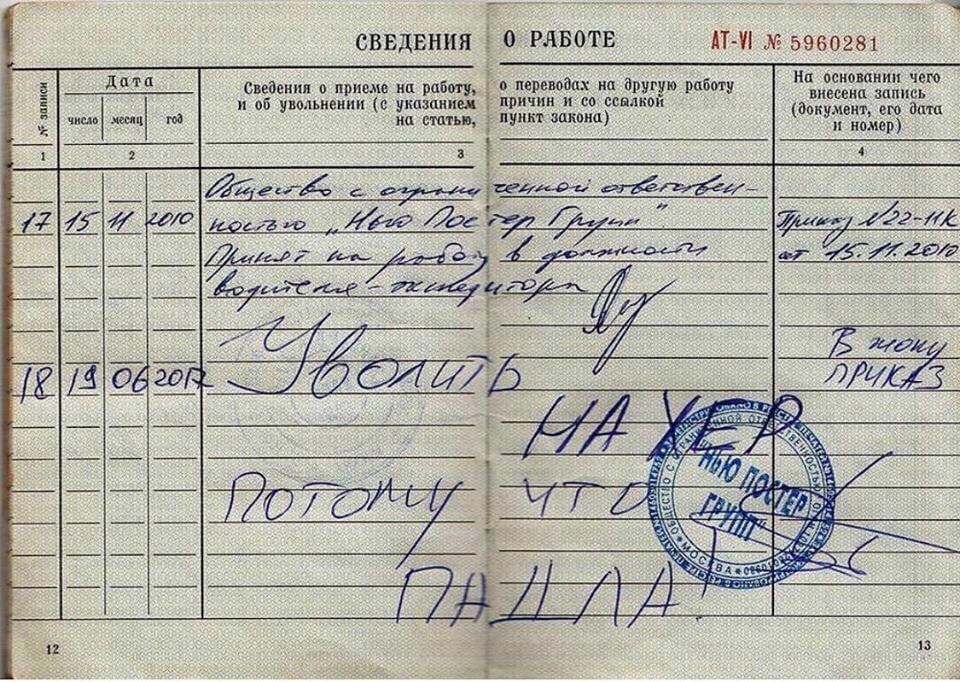 СВЕДЕНИЯ О РАБОТЕ АТ-VI № 5960281
№ записи
Дата
число месяц год
Сведения о приеме на работу, о переводах на другую работу
и об увольнении (с указанием причин и со ссылкой
на статью, пункт закона)
На основании чего
внесена запись
(документ, его дата
и номер)
1 2 3 4
Общество с ограниченной ответствен-
17 15 11 2010 ностью „Нью Постер Групп" Приказ №22-11К
Принят на работу в должности от 15.11.2010
водителя-экспедитора
В жопу
18 19 06 2017 Уволить ПРИКАЗ
НАХЕР
ПОТОМУ ЧТО
ПАДЛА!
ОБЩЕСТВО С ОГРАНИЧЕННОЙ ОТВЕТСТВЕННОСТЬЮ
"НЬЮ ПОСТЕР
ГРУПП"
МОСКВА
12 13